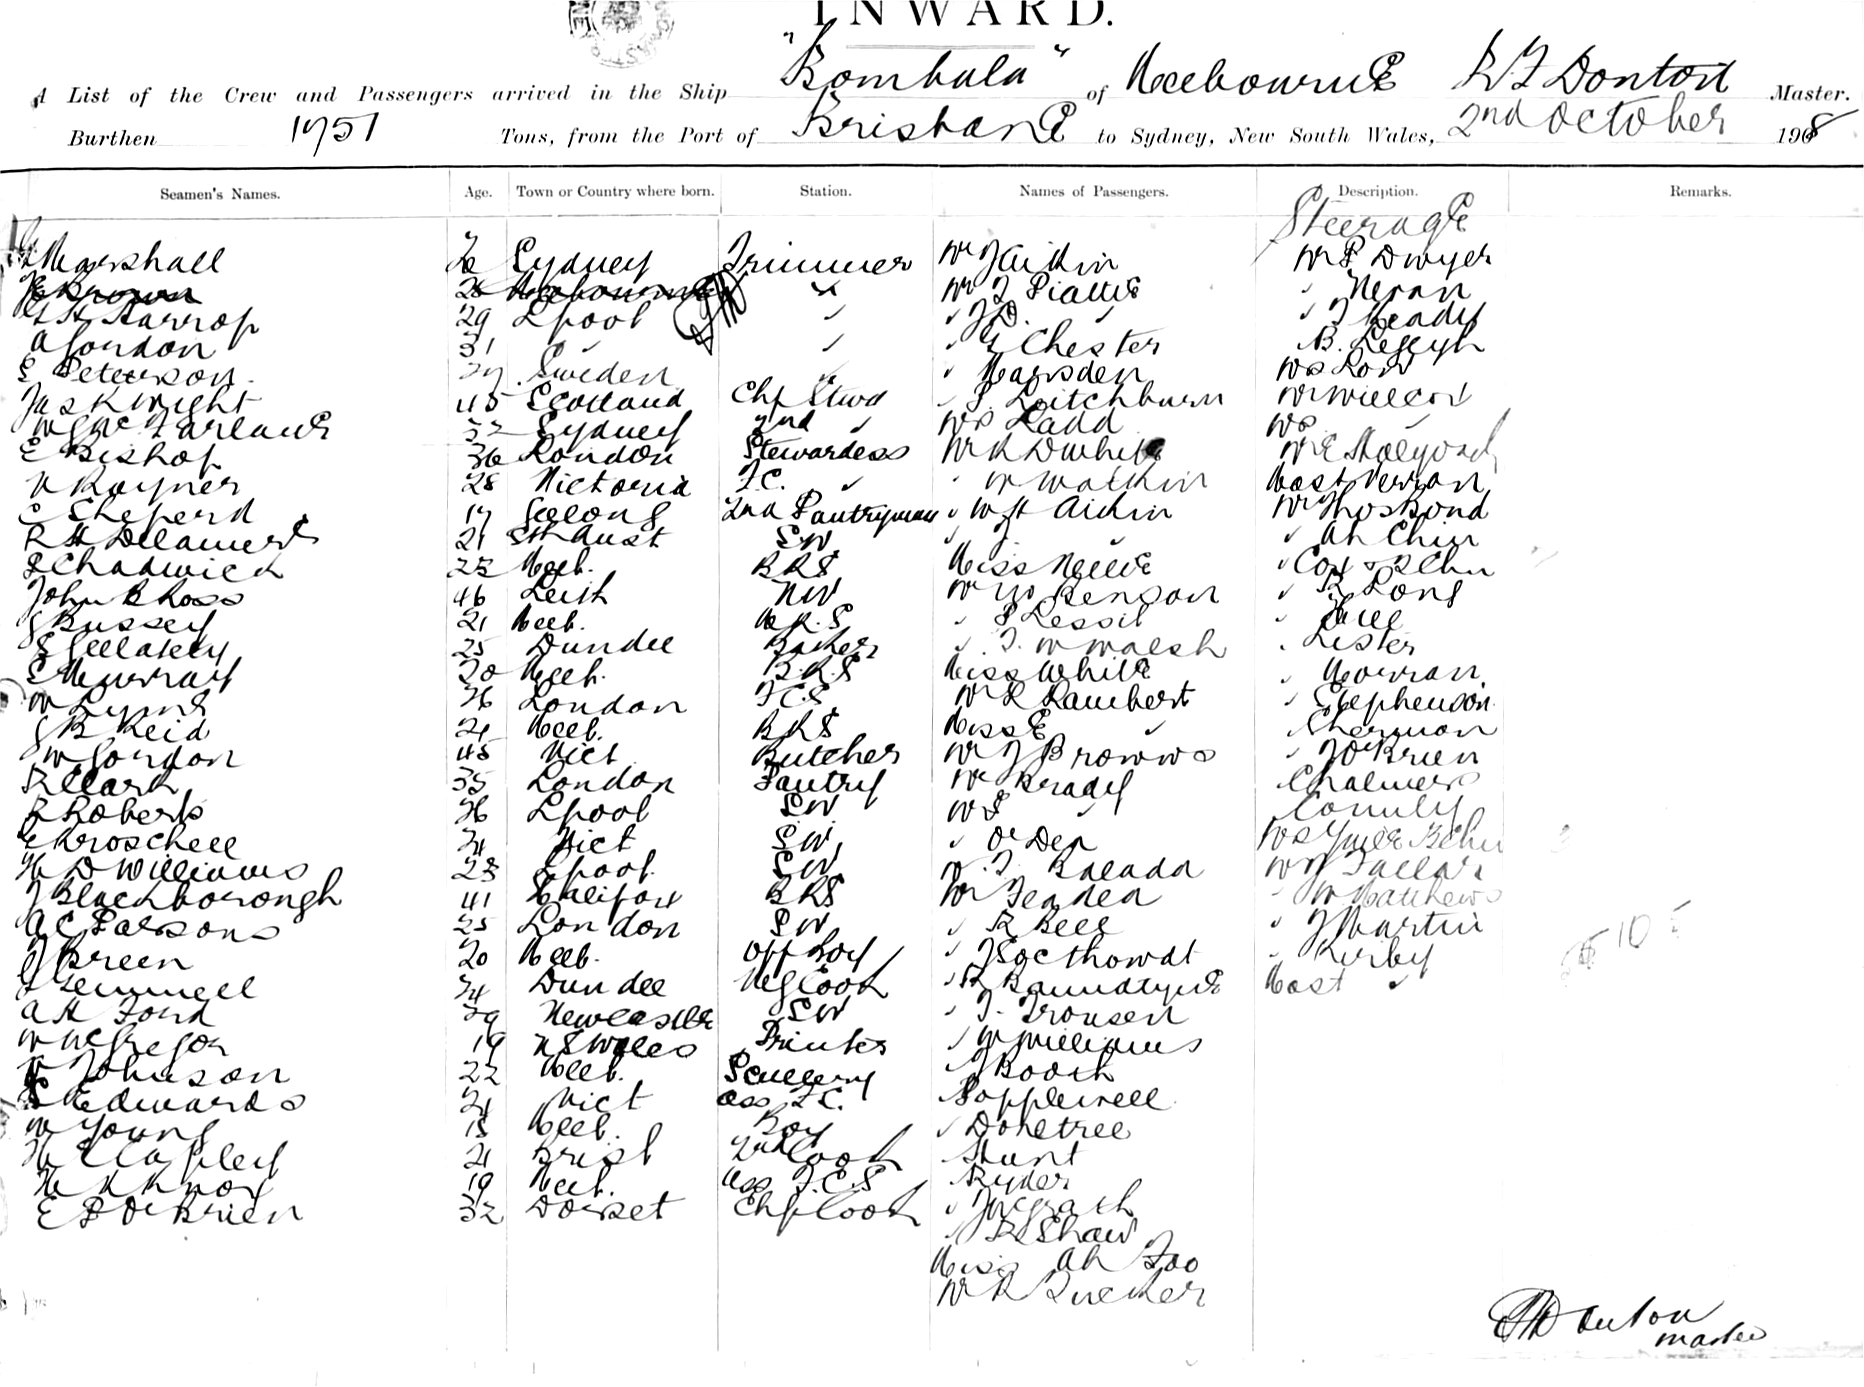 INWARD.
A List of the Crew and Passengers arrived in the Ship "Bombala" of Melbourne R F Donton Master.
Burthen 1751 Tons, from the Port of Brisbane to Sydney, New South Wales, 2nd October 1908
Seamen's Names. Age. Town or Country where born. Station. Names of Passengers. Description. Remarks.
Steerage
Marshall Sydney Trimmer Mr J Aitkin Mr P Dwyer
Brown 26 Melbourne " Mr J "
Harrop 29 Lpool " " " " T Keady
A Gordon 31 " " " G Chester "
E Peterson Sweden " " Marsden Mrs Low
Jas R Wright 45 Scotland Chf Stwd " Litchburn Mr Willcox
W G McFarlane 32 Sydney 2nd " Mrs Ladd Mrs "
E Bishop 36 London Stewardess Mr R D White Mr E Holyoad
Rayner 28 Victoria F.C. " " W Watkin Mast Verran
Sheperd 17 Geelong 2nd Pantryman " W H Aitkin Mr Thos Bond
R H Delamere 21 Sth Aust SW " J " " Ah Chin
S Chadwick 22 Melb. BRS Miss Neeve " Cox & 2 Chn
John B Ross 46 Leith NW Mr W Benson " R Long
G Bussey 21 Melb. M.R.S " S Lessil " Hill
S Gellatly 25 Dundee Baker " T. W Walsh " Lister
S Murray 20 Melb. B.R.S Miss White " Morran
W Lyons 26 London F.C.S Mr R Lambert " Stephenson
G B Reid 21 Melb. BRS Miss E " Sherman
W Gordon 45 Vict Butcher Mr J Browns " J O'Brien
R Clark 35 London Pantry Mr Brady Chalmers
R Roberts 26 Lpool SW Mr S " Connly
E Kroschell 24 Vict SW " Mrs
H D Williams 23 Lpool SW
J Blackborough 41 Halifax BRS Mr " W Matthews
A C Parsons 25 London SW " R Bell " J Martin
J Breen 20 Melb. Off Boy " J " Kirby
J Gemmell 24 Dundee Veg Cook " R Mast "
A H Ford 29 Newcastle SW " T.
W McGregor 19 N S Wales Printer " W Williams
Johnson 22 Melb. Scullery " J Booth
S Edwards 21 Vict Ass F.C. Popplewell
W Young 18 Melb. Boy "
H Clapley 21 Brisb 2nd Cook Hunt
H K Knox 19 Melb. Ass F.C.S Ryder
E P O'Brien 32 Dorset Chf Cook " J McGrath
" R Shaw
Miss Ah Foo
Mr R
Donton
master